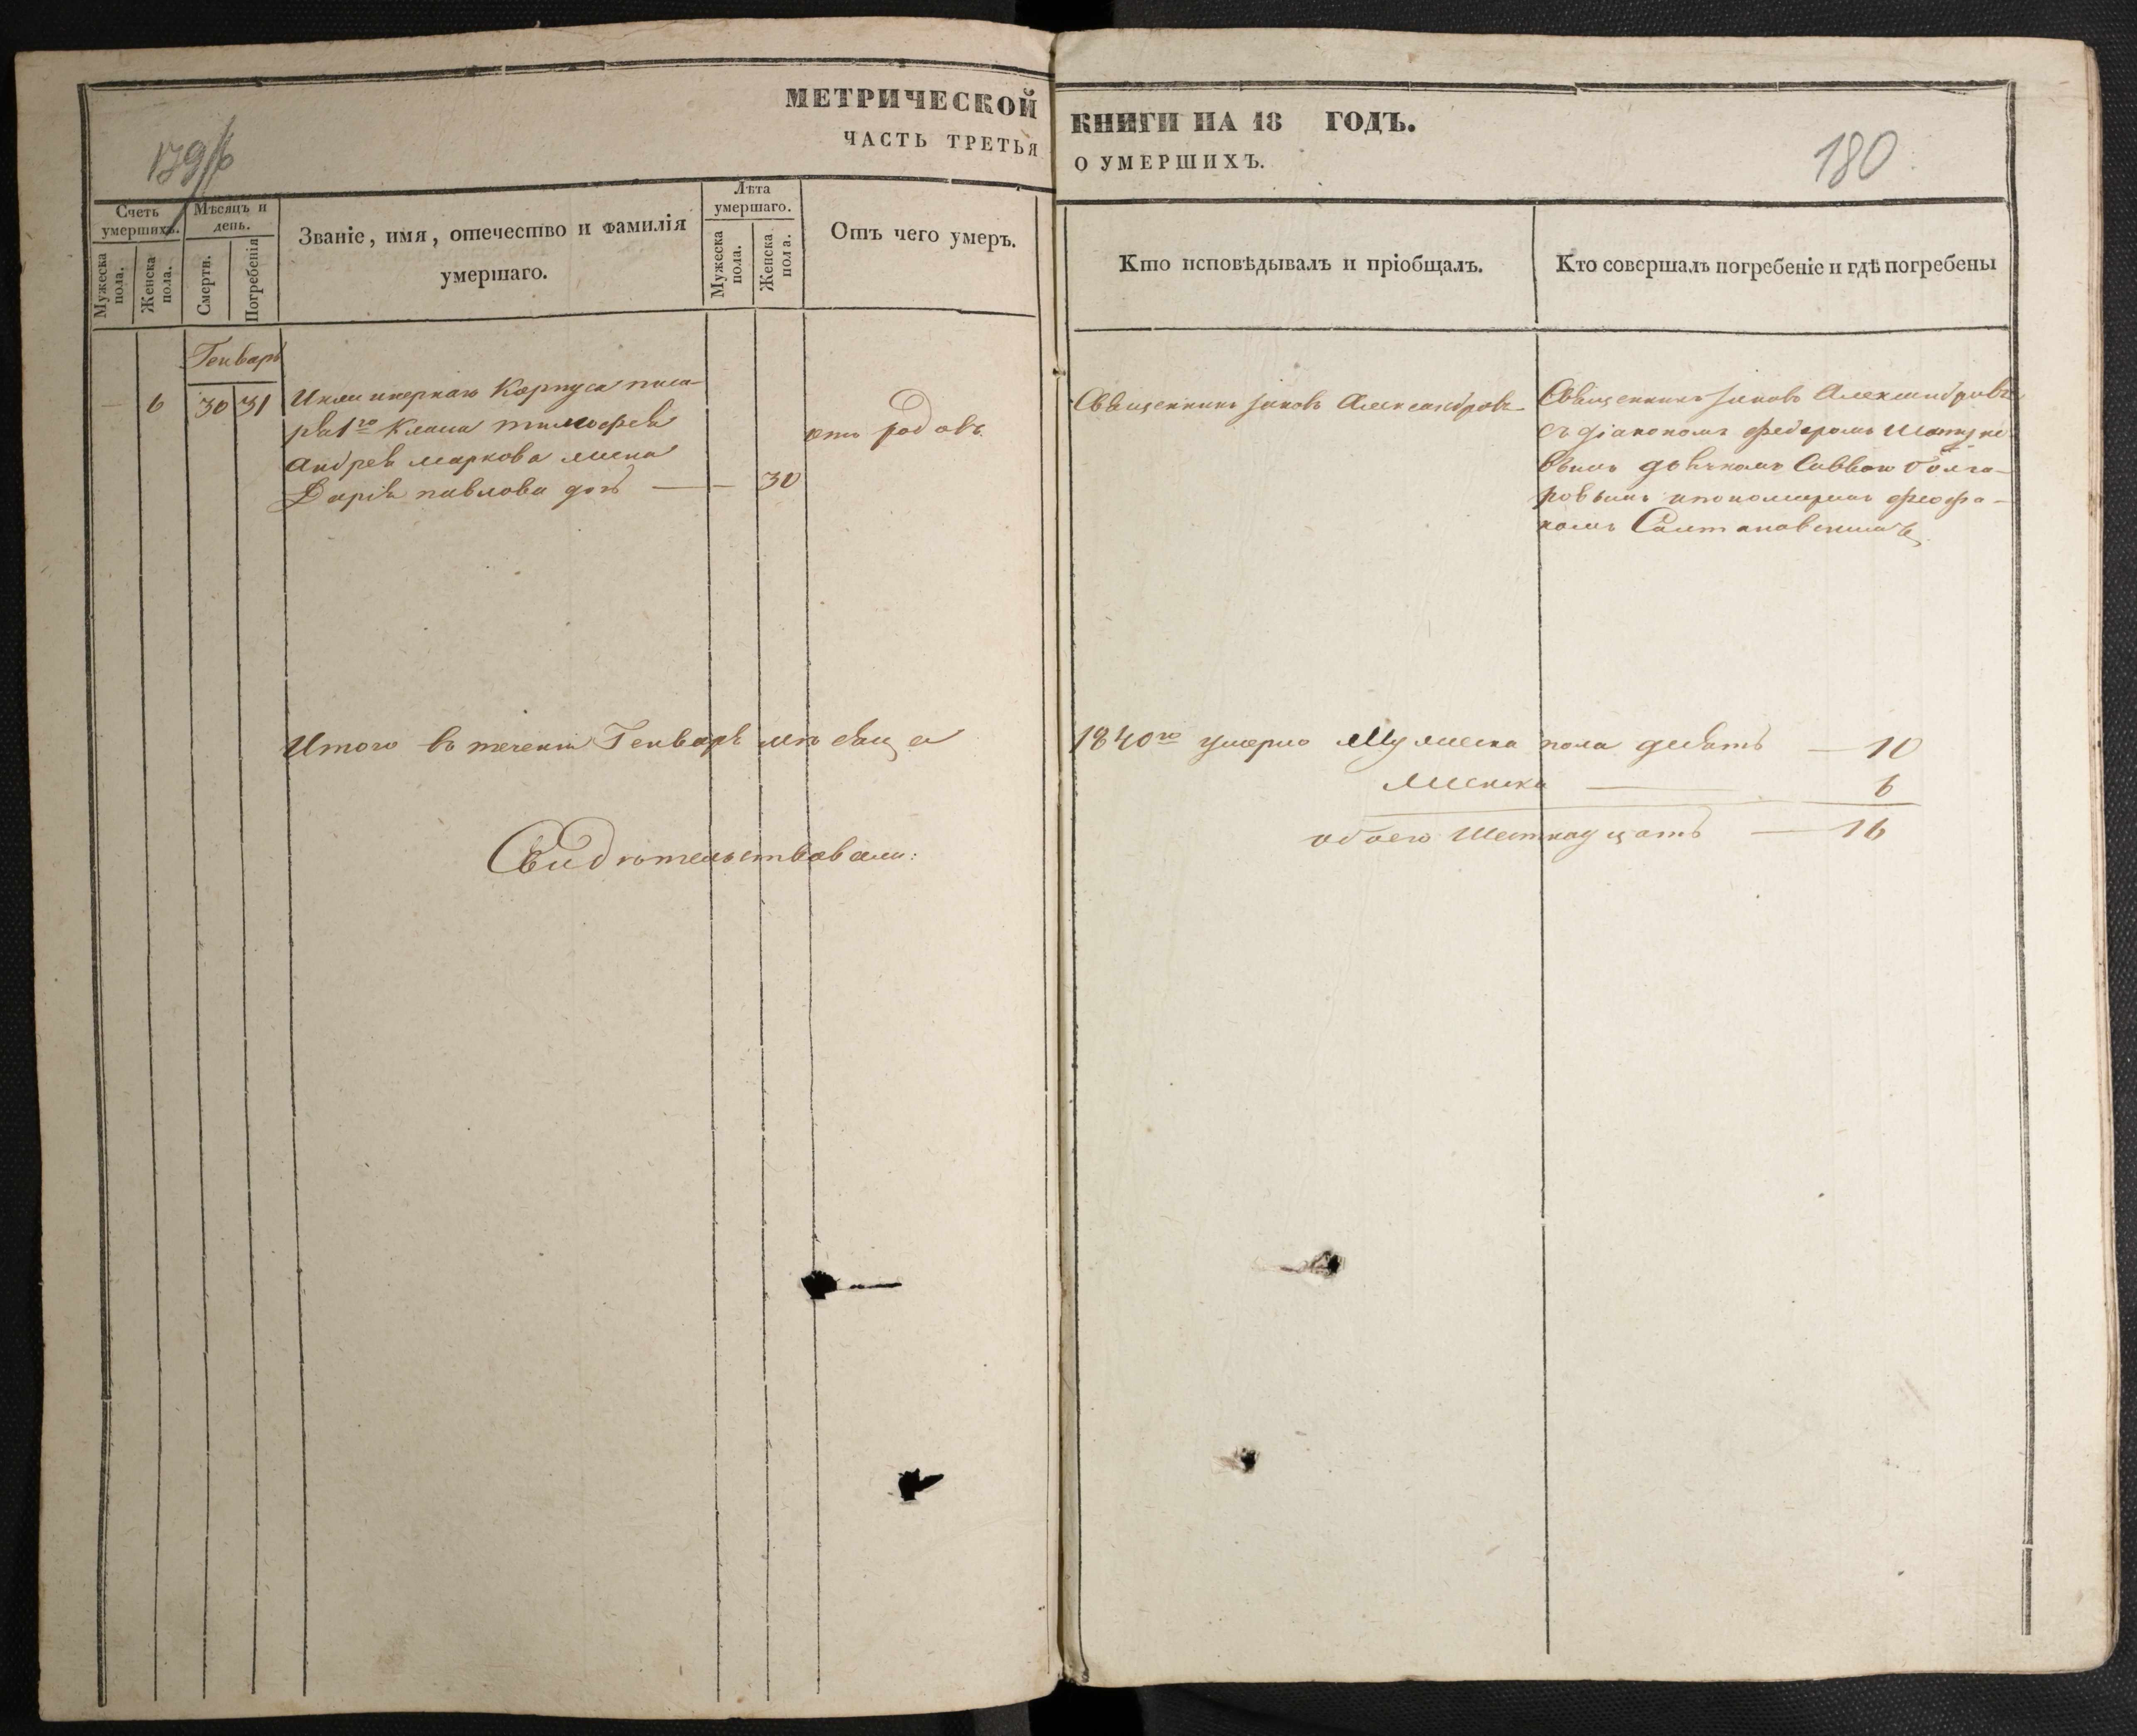 МЕТРИЧЕСКОЙ
ЧАСТЬ ТРЕТЬЯ
179/б
Счетъ умершихъ.
Мѣсяцъ и день.
Званіе, имя, отечество и фамилія
умершаго.
Лѣта умершаго.
Отъ чего умеръ.
Мужеска пола.
Женска пола.
Смерти.
Погребенія
Мужеска пола.
Женска пола.
Генварь
— 6 30 31 Инженернаго Корпуса писа-
ря 1го Класа тимофея
андрея маркова жена
Дарія павлова дочь — — 30
отъ родовъ.
Итого въ теченіи Генваря мѣсяца
Свидѣтельствовали:
КНИГИ НА 18 ГОДЪ.
О УМЕРШИХЪ.
180
Кто исповѣдывалъ и пріобщалъ.
Кто совершалъ погребеніе и гдѣ погребены
Священникъ Іаковъ Александровъ
Священникъ Іаковъ Александровъ
съ діакономъ федоромъ
дьячкомъ Саввою болга-
ровымъ и пономаремъ феофа-
номъ Салтановскимъ
1840го умерло Мужеска пола десять — 10
Женска — 6
обоего Шестнадцать — 16